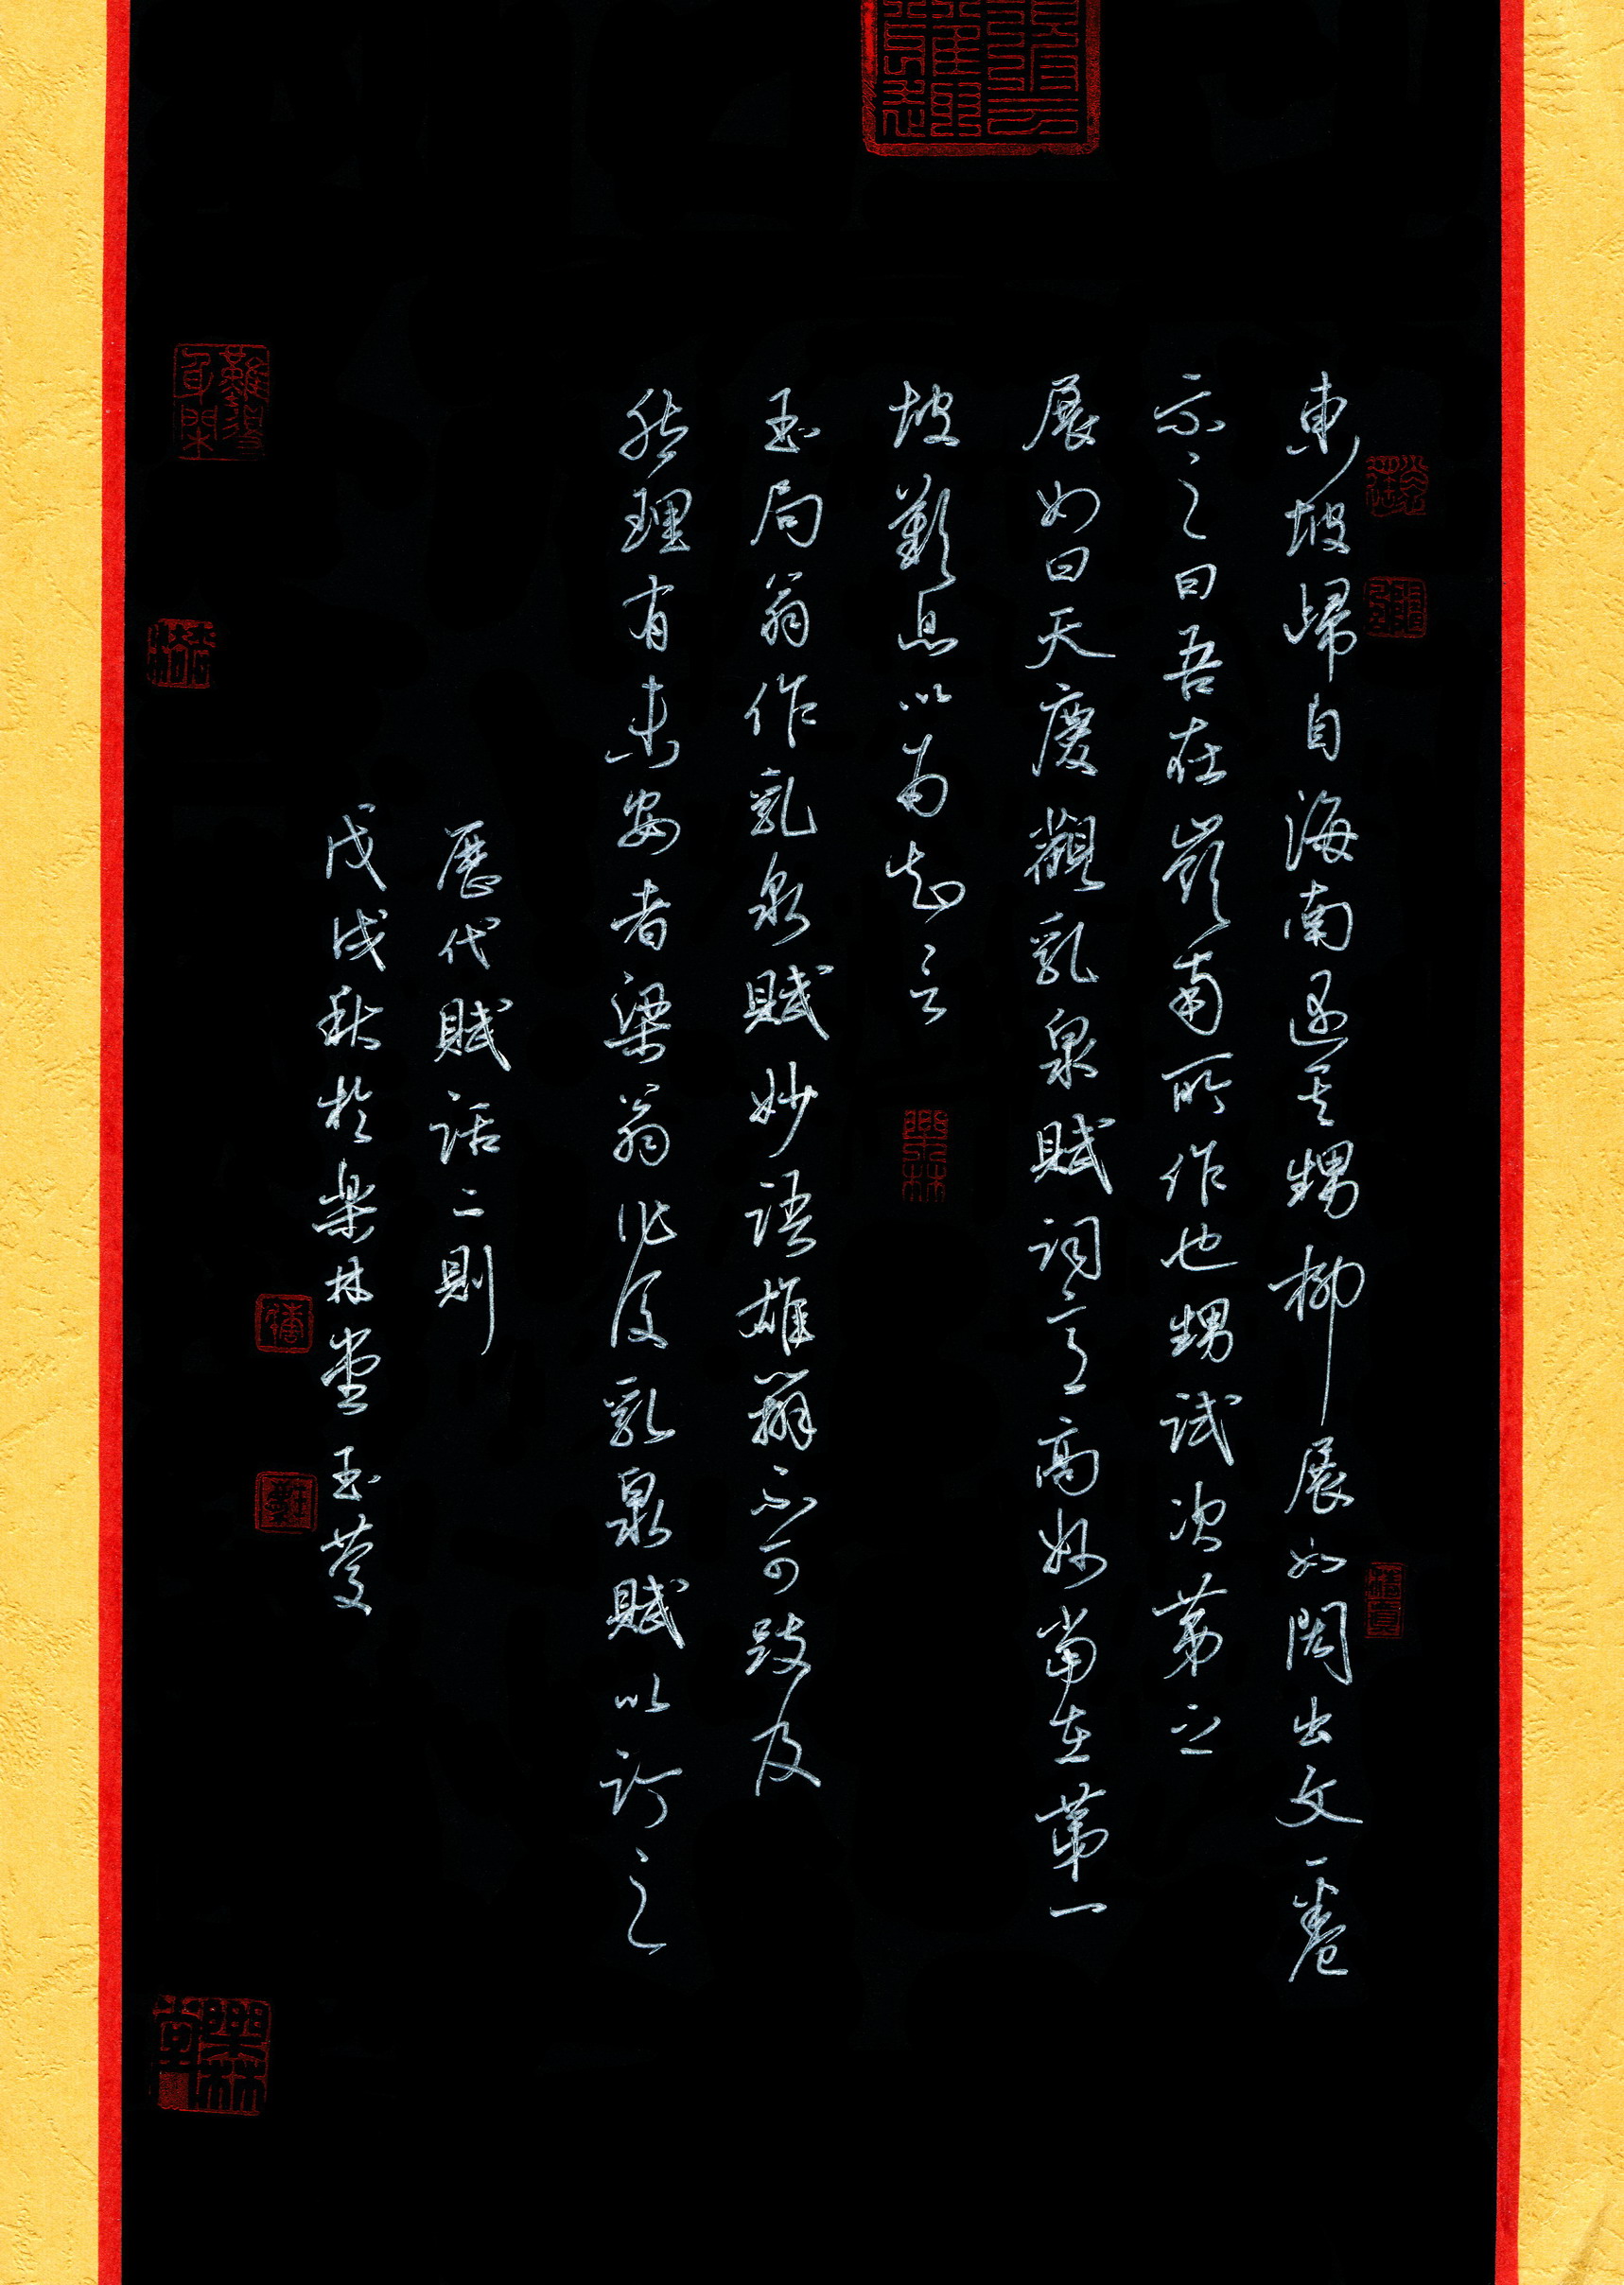 東坡歸自海南遇其甥柳展如閎出文一卷
示之曰吾在嶺南所作也甥試次第之
展如曰天慶觀乳泉賦詞意高妙當在第一
坡歎息以為知言
玉局翁作乳泉賦妙語雄辯不可跂及
然理有未安者梁翁作後乳泉賦以訂之
歷代賦話二則
戊戌秋於樂林堂玉
難得身閑
樂林
樂林堂